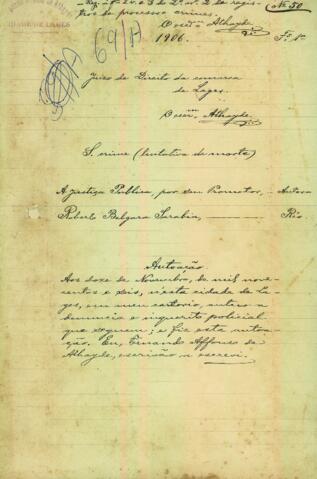 Nº 50
1906.
Fs. 1ª
69/A
Juizo de Direito da comarca
de Lages.
Escrm. Athayde.
S. crime (tentativa de morte)
A Justiça Publica, por seu Promotor, — Autora
Roberto Sarabia, — Réo.
Autoação.
Aos doze de Novembro, de mil nove-
centos e seis, n'esta cidade de La-
ges, em meu cartorio, autuo a
denuncia e inquerito policial
que seguem; e fiz esta autoa-
ção. Eu, Fernando Affonso de
Athayde, escrivão o escrevi.